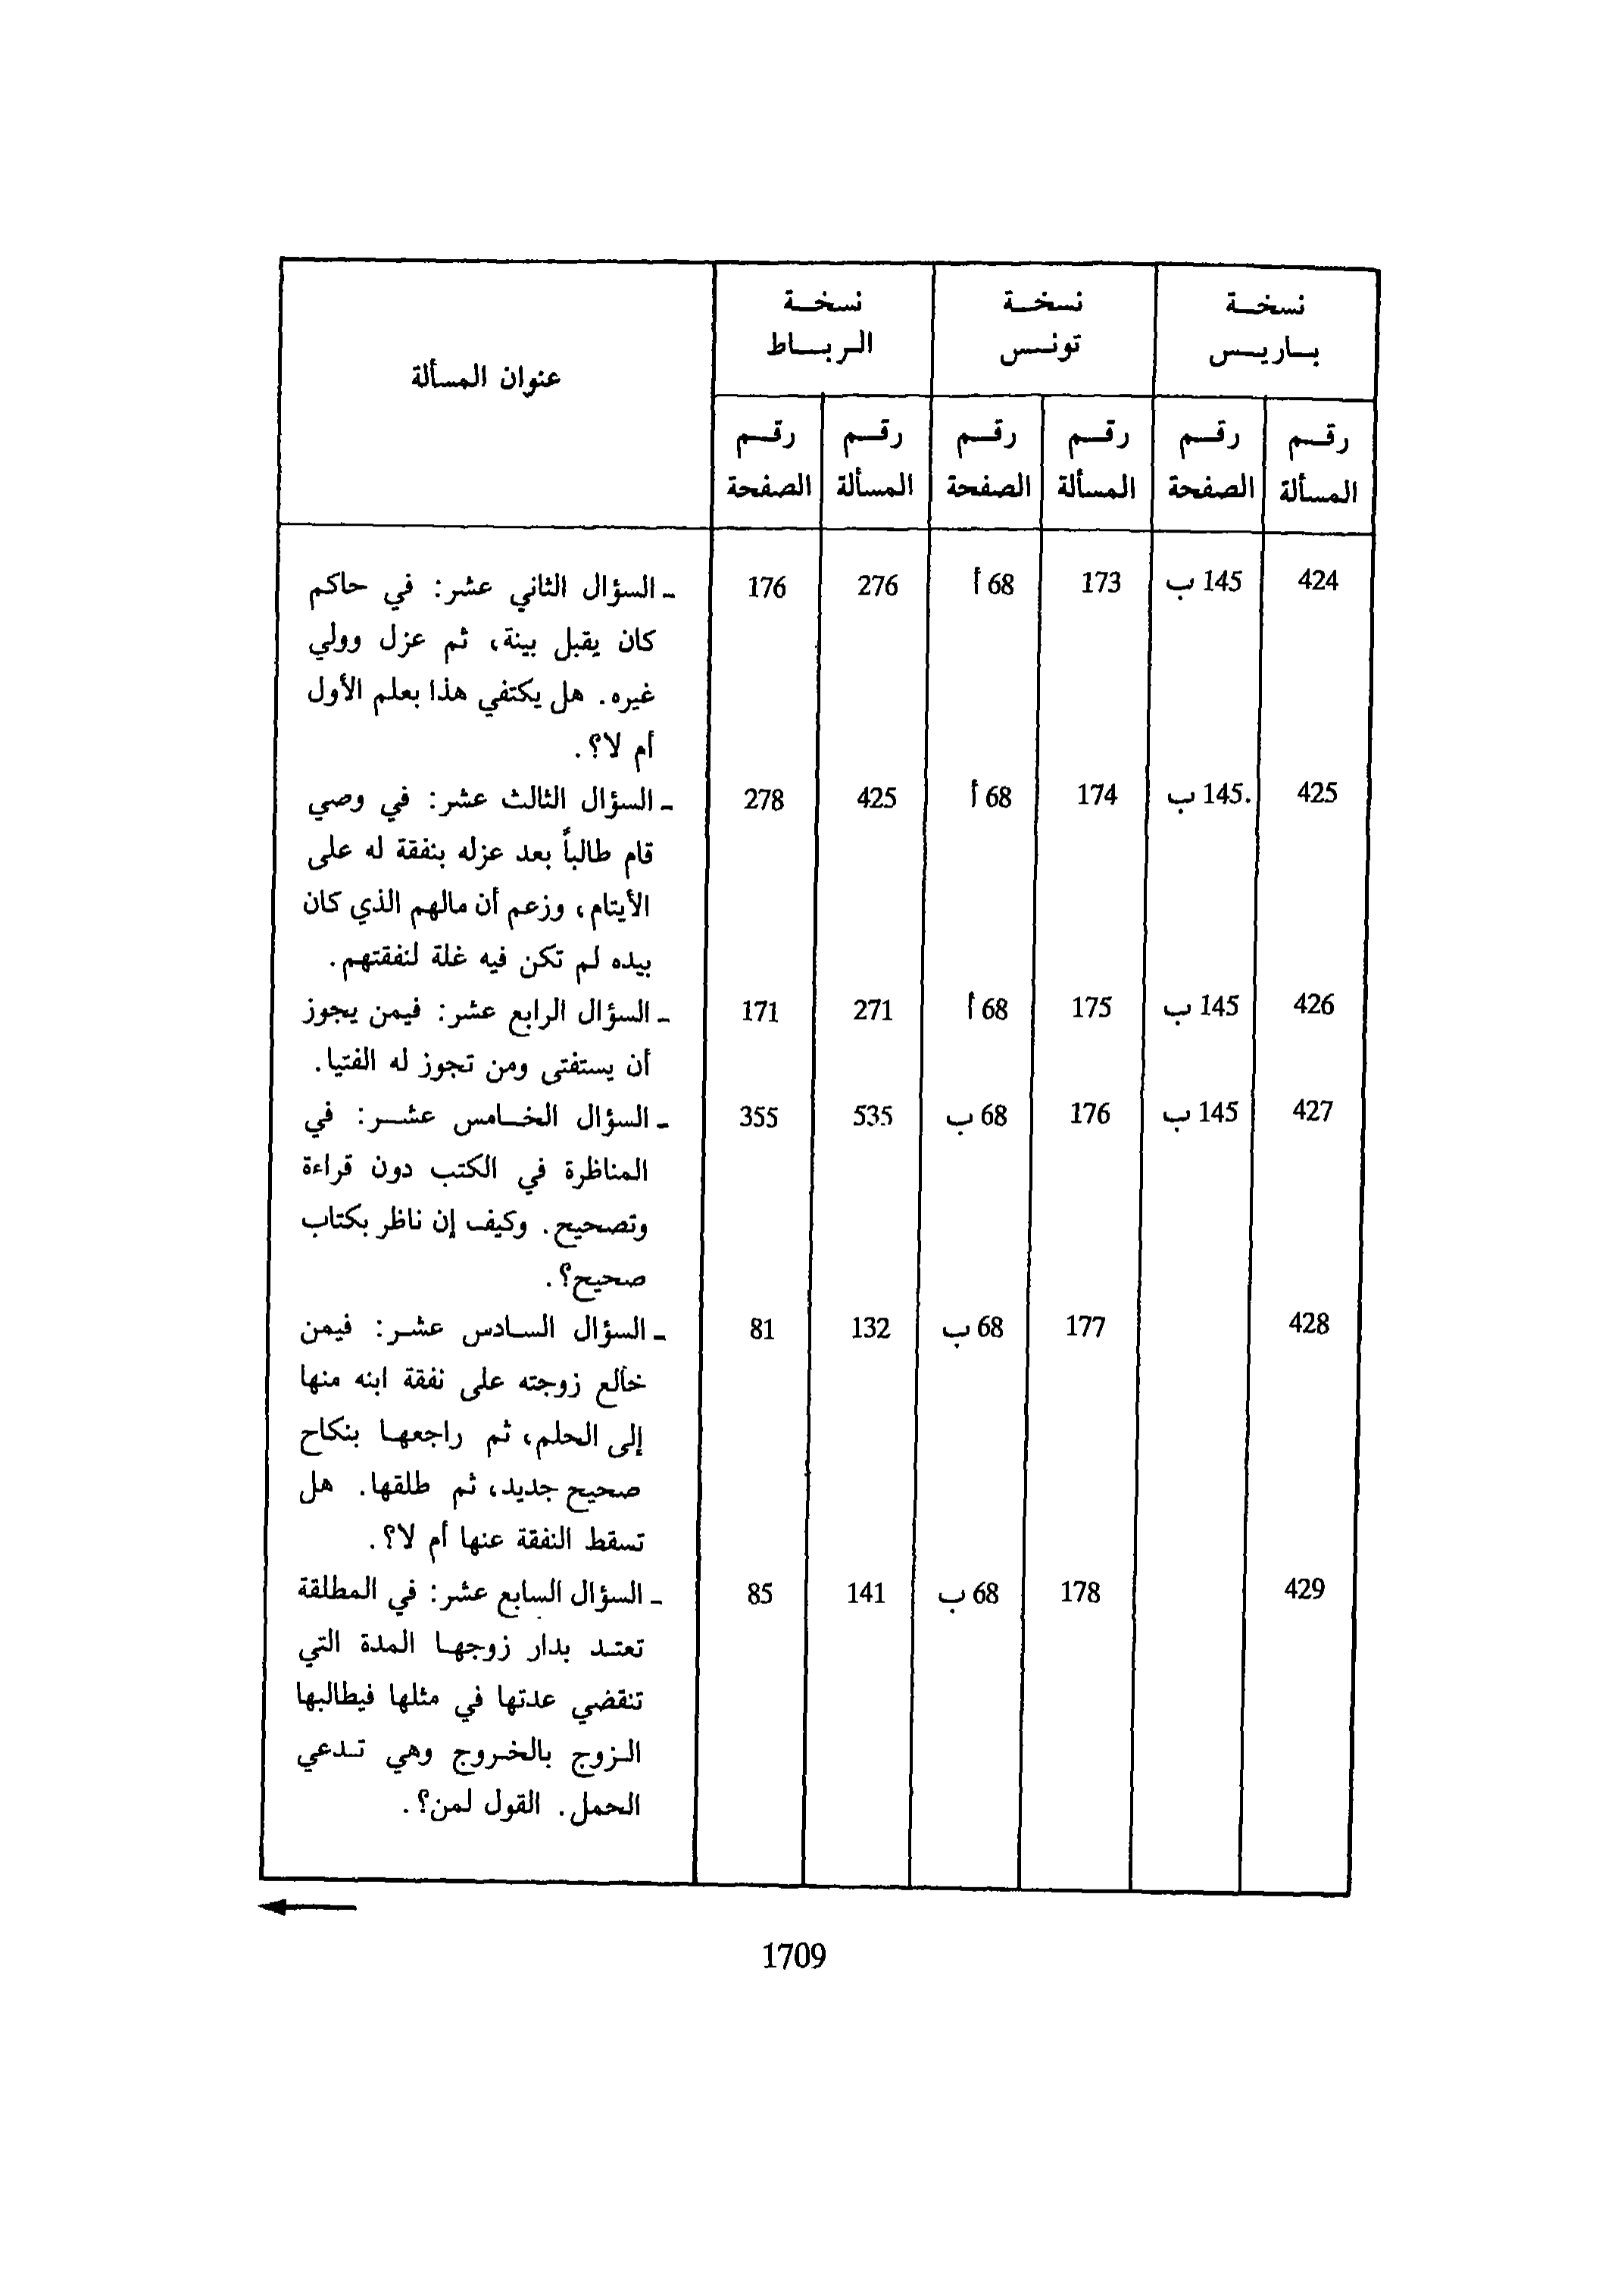 نسخة نسخة نسخة عنوان المسألة
باريس تونس الرباط
رقم رقم رقم رقم رقم رقم
المسألة الصفحة المسألة الصفحة المسألة الصفحة
424 145 ب 173 68 أ 276 176 - السؤال الثاني عشر: في حاكم
كان يقبل بينة، ثم عزل وولي
غيره. هل يكتفي هذا بعلم الأول
أم لا؟.
425 .145 ب 174 68 أ 425 278 - السؤال الثالث عشر: في وصي
قام طالباً بعد عزله بنفقة له على
الأيتام، وزعم أن مالهم الذي كان
بيده لم تكن فيه غلة لنفقتهم.
426 145 ب 175 68 أ 271 171 - السؤال الرابع عشر: فيمن يجوز
أن يستفتى ومن تجوز له الفتيا.
427 145 ب 176 68 ب 535 355 - السؤال الخامس عشر: في
المناظرة في الكتب دون قراءة
وتصحيح. وكيف إن ناظر بكتاب
صحيح؟.
428 177 68 ب 132 81 - السؤال السادس عشر: فيمن
خالع زوجته على نفقة ابنه منها
إلى الحلم، ثم راجعها بنكاح
صحيح جديد، ثم طلقها. هل
تسقط النفقة عنها أم لا؟.
429 178 68 ب 141 85 - السؤال السابع عشر: في المطلقة
تعتد بدار زوجها المدة التي
تنقضي عدتها في مثلها فيطالبها
الزوج بالخروج وهي تدعي
الحمل. القول لمن؟.
1709